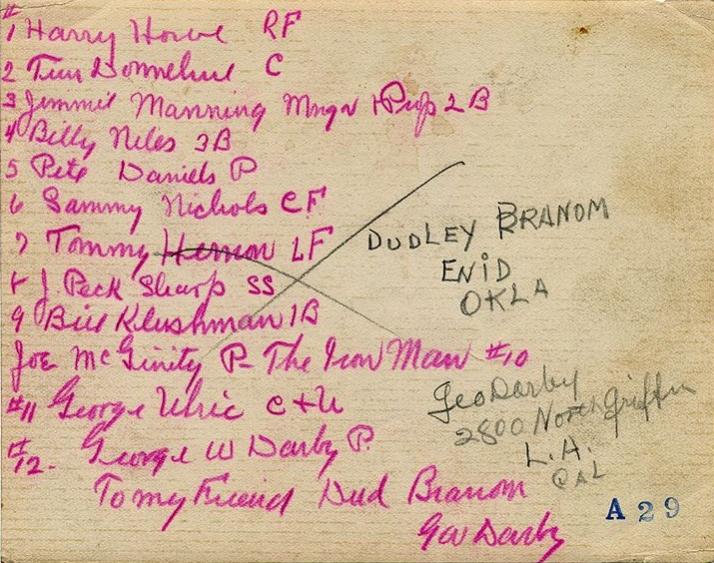 #
1 Harry Howe RF
2 Tim Donnehue C
3 Jimmie Manning Mngr + Prop 2B
4 Billy Niles 3B
5 Pete Daniels P
6 Sammy Nichols CF
7 Tommy Hernon LF
8 J Peck Sharp SS
9 Bill Klushman 1B
Joe McGinity P- The Iron Man #10
#11 George Ulric C + U
#12. George W Darby P.
To my Friend Dud Branom
Geo Darby
DUDLEY BRANOM
ENID
OKLA
Geo Darby
2800 North Griffin
L.A.
CAL
A29